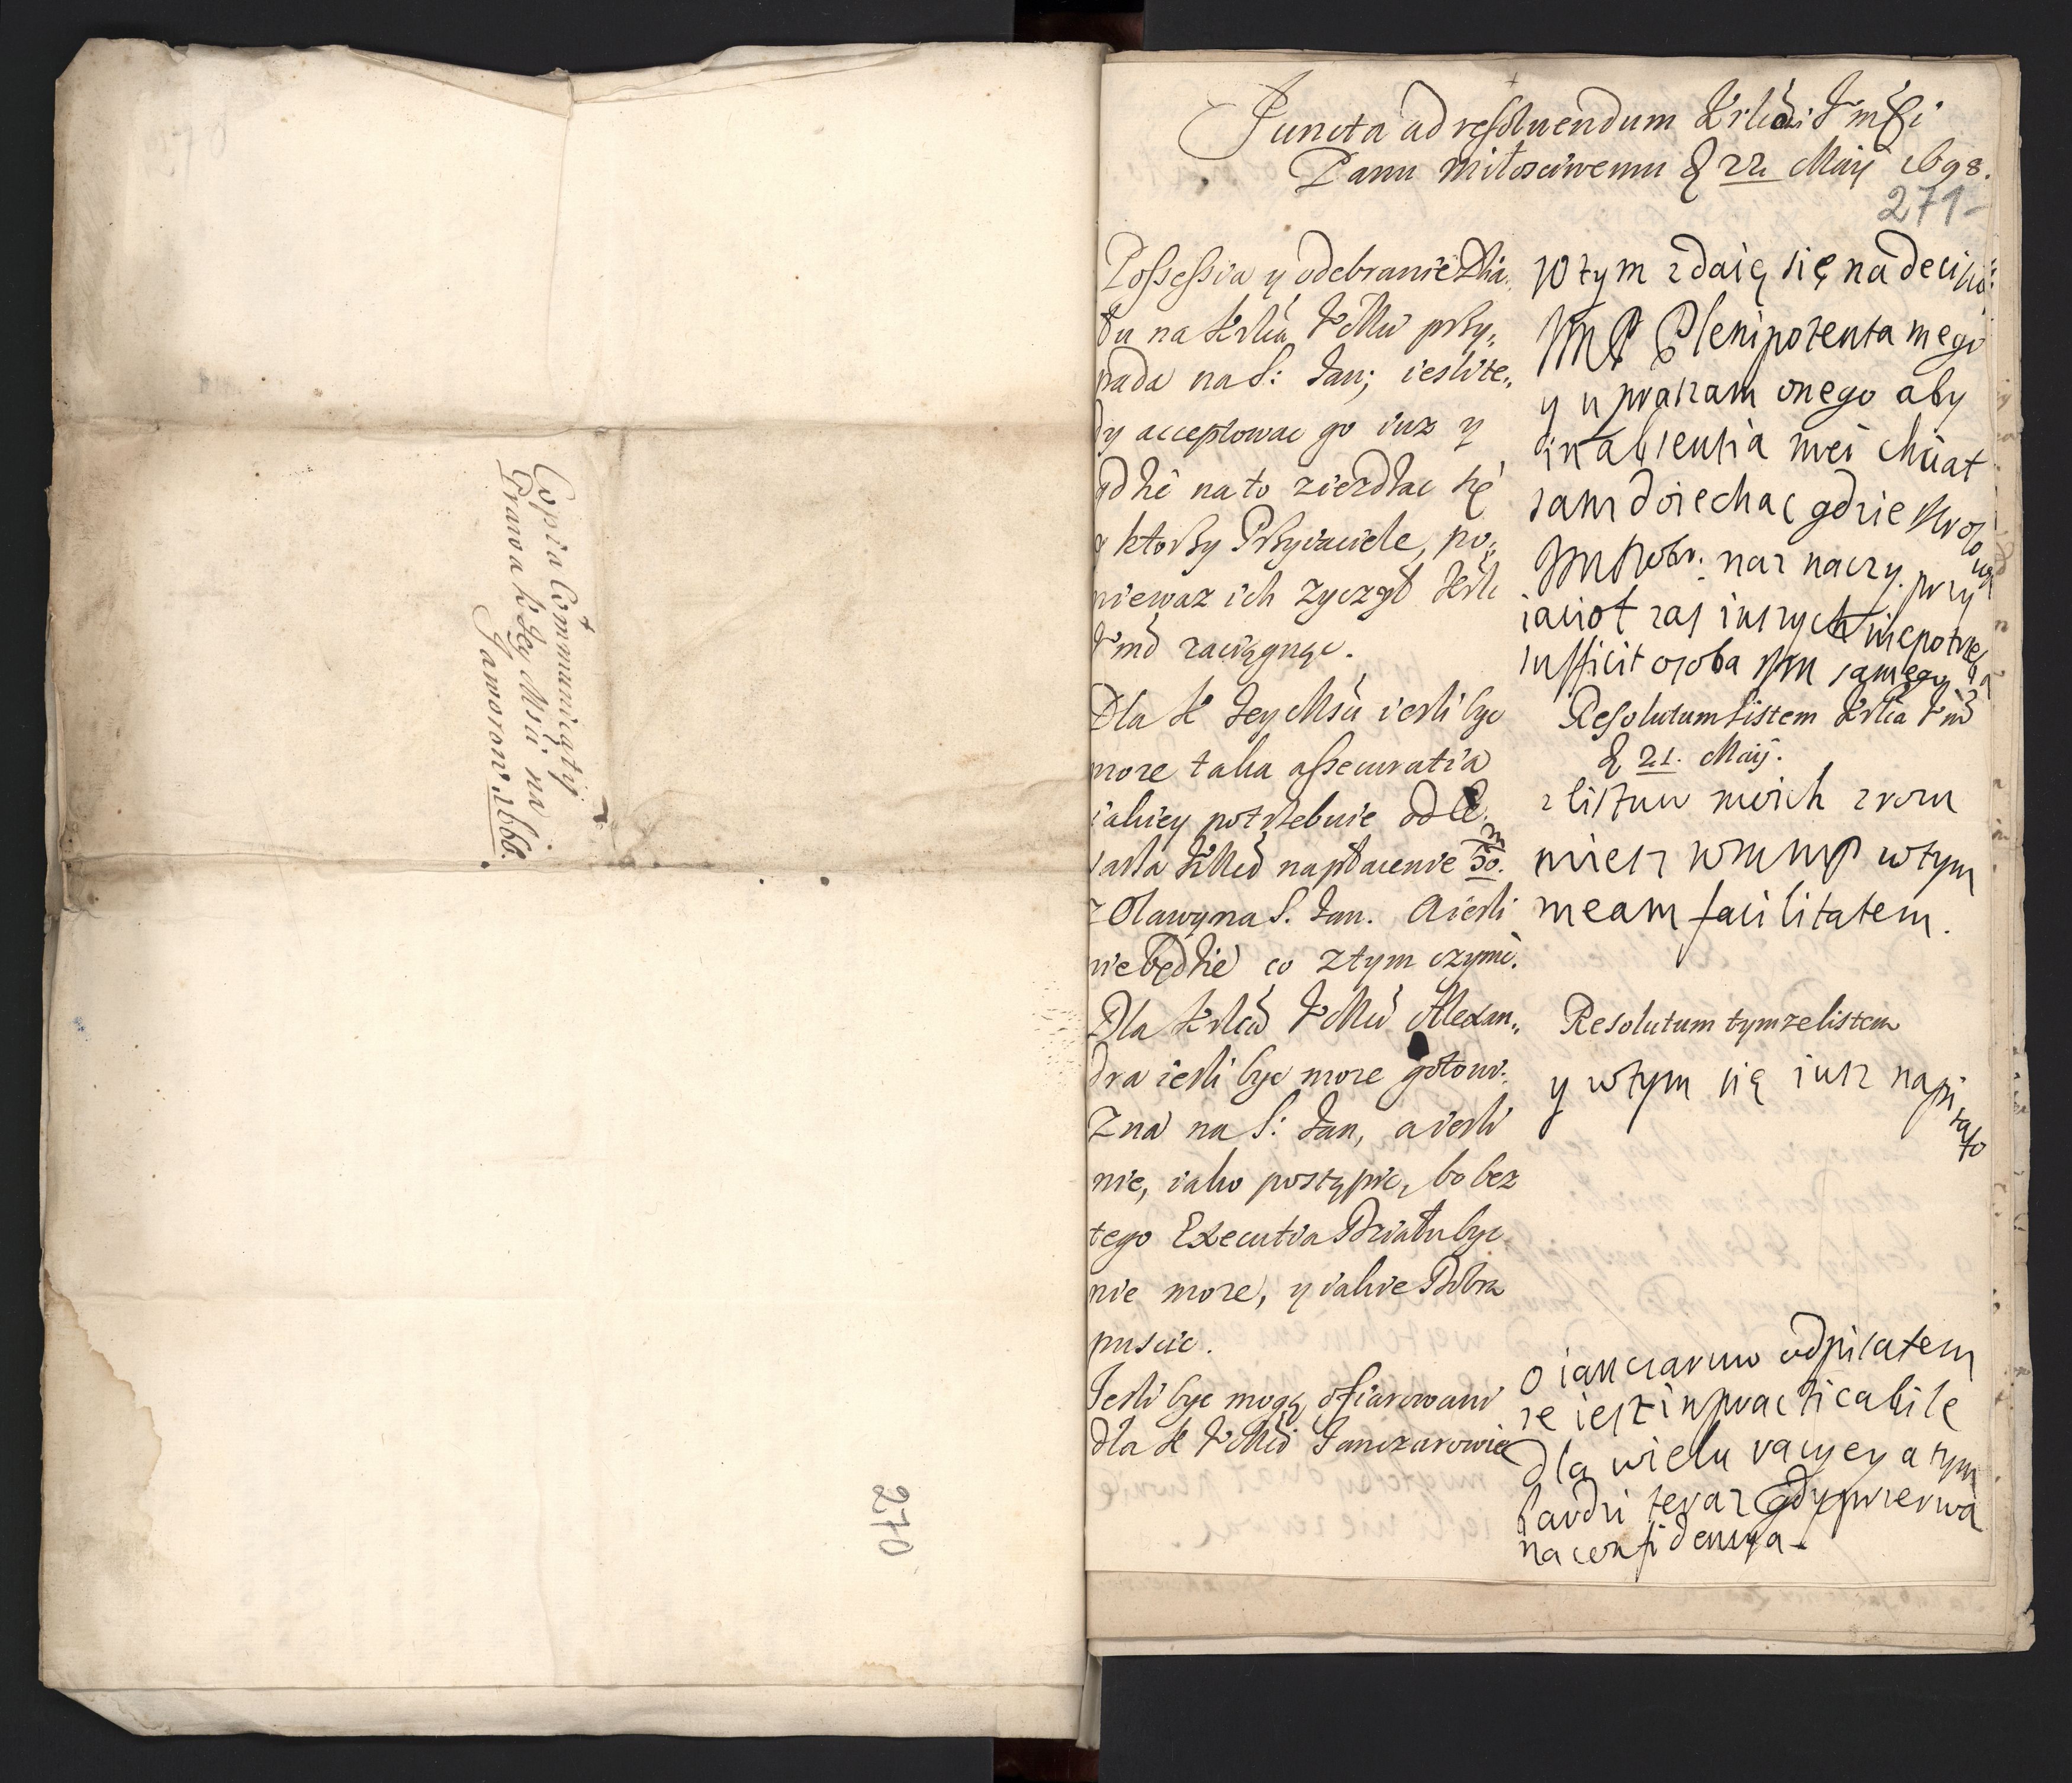 Copia Communicaty
Prawa K Jey Msći na
Jaworow. 1666.
270
Puncta ad resoluendum Krlcowi Jmći
Panu Miłosciwemu D 22 Maij 1698.
271-
Possessia y odebranie Dzia„
łu na Krlca JeMći przy„
pada na S: Jan; iesli te„
dy acceptowac go iuz y
gdzie na to ziezdzac się
y ktorzy Przyiaciele, po„
niewaz ich zyczył Krlc
Jmć zaciągnąc.
Dla K Jey Msći iesli byc
moze taka assecuratia
iakiey potrzebuie od
JeMći na płacenie 50/m.
z Olawy na S. Jan. A iesli
nie będzie co z tym czynić.
Dla Krlca JeMći Alexan„
dra iesli byc moze gotowi„
zna na S: Jan, a iesli
nie, iako postąpic, bo bez
tego Executia Działu byc
nie moze, y iakie Dobra
puscic.
Jesli byc mogą ofiarowani
dla K JeMći Janczarowie
W tym zdaię się na decisią
JmP Plenipotenta mego
y upraszam onego aby
in absentia mei chciał
sam doiechac gdzie Krolowa
Jm Dobr: naznaczy. przy
iacioł zas inszych niepotrzeba
sufficit osoba Jm samego
Resolutum listem Krlca Jmć
D 21. Maij.
z listuw moich zrozu
miesz w tym
meam facilitatem.
Resolutum tymze listem
y w tym się iusz napisało
o ianczaruw odpisałem
ze iest inpracticabile
dla wielu racyey a tym
bardzi teraz gdy pierwa
na confidencya-